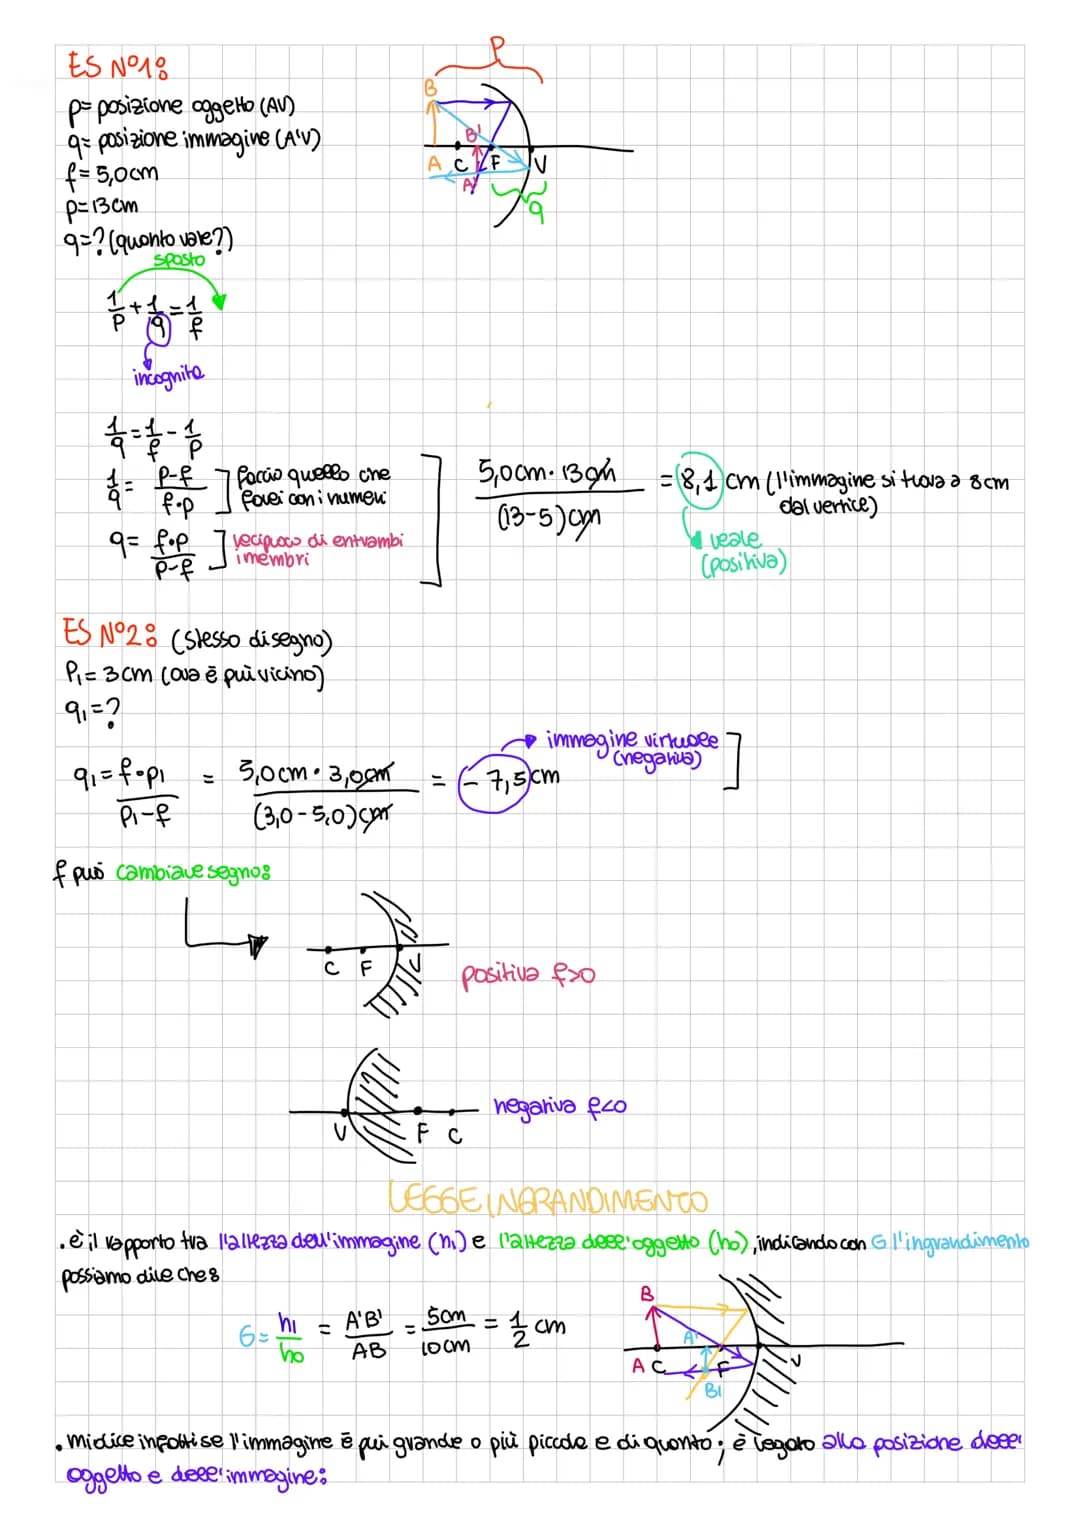 ES N°1:
p= posizione oggetto (AV)
q= posizione immagine (A'V)
f= 5,0cm
p= 13cm
q=? (quanto vale?)
P
B
B'
A C F V
A'
q
sposto
1/p + 1/q = 1/f
incognita
1/q = 1/f - 1/p
1/q = p-f / f·p ] faccio quello che farei con i numeri
q = f·p / p-f ] reciproco di entrambi i membri
5,0cm · 13cm / (13-5)cm = 8,1 cm (l'immagine si trova a 8cm dal vertice)
reale
(positiva)
ES N°2: (stesso disegno)
P₁= 3cm (ora è più vicino)
q₁=?
q₁ = f·p₁ / p₁-f = 5,0cm · 3,0cm / (3,0-5,0)cm = -7,5 cm
immagine virtuale
(negativa)
f può cambiare segno:
C F V
positiva f>0
V F C
negativa f<0
LEGGE INGRANDIMENTO
. è il rapporto tra l'altezza dell'immagine (hi) e l'altezza dell'oggetto (ho), indicando con G l'ingrandimento
possiamo dire che:
G = hi / ho = A'B' / AB = 5cm / 10cm = 1/2 cm
B
A'
A C F V
B'
. mi dice infatti se l'immagine è più grande o più piccola e di quanto; è legato alla posizione dell'
oggetto e dell'immagine: